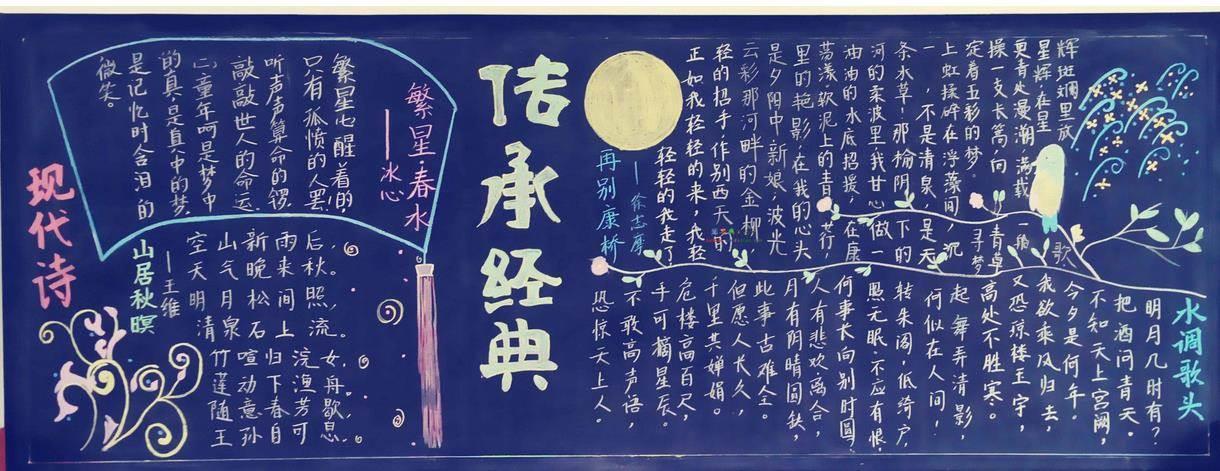 传承经典
现代诗
繁星·春水
——冰心
繁星也醒着的,
只有孤愤的人罢
听声声算命的锣
敲敲世人的命运
心童年呵是梦中
的真,是真中的梦
是记忆时含泪的
微笑。
山居秋暝
—王维
空山新雨后,
天气晚来秋。
明月松间照,
清泉石上流。
竹喧归浣女,
莲动下渔舟。
随意春芳歇,
王孙自可息。
再别康桥
—徐志摩
轻轻的我走了
正如我轻轻的来,我轻
轻的招手作别西天的
云彩那河畔的金柳
是夕阳中新娘,波光
里的艳影,在我的心头
荡漾,软泥上的青荇,
油油的水底招摇,在康
河的柔波里我甘心做一
条水草!那榆阴下的
一,不是清泉,是天
上虹揉碎在浮藻间,沉
淀着五彩的梦。寻梦
操一支长篙,向青草
更青处漫溯,满载一船
星辉,在星
辉斑斓里放歌
水调歌头
明月几时有?
把酒问青天。
不知天上宫阙,
今夕是何年。
我欲乘风归去,
又恐琼楼玉宇,
高处不胜寒。
起舞弄清影,
何似在人间,
转朱阁,低绮户,
照无眠不应有恨
何事长向别时圆
人有悲欢离合,
月有阴晴圆缺,
此事古难全。
但愿人长久,
千里共婵娟。
危楼高百尺,
手可摘星辰。
不敢高声语,
恐惊天上人。